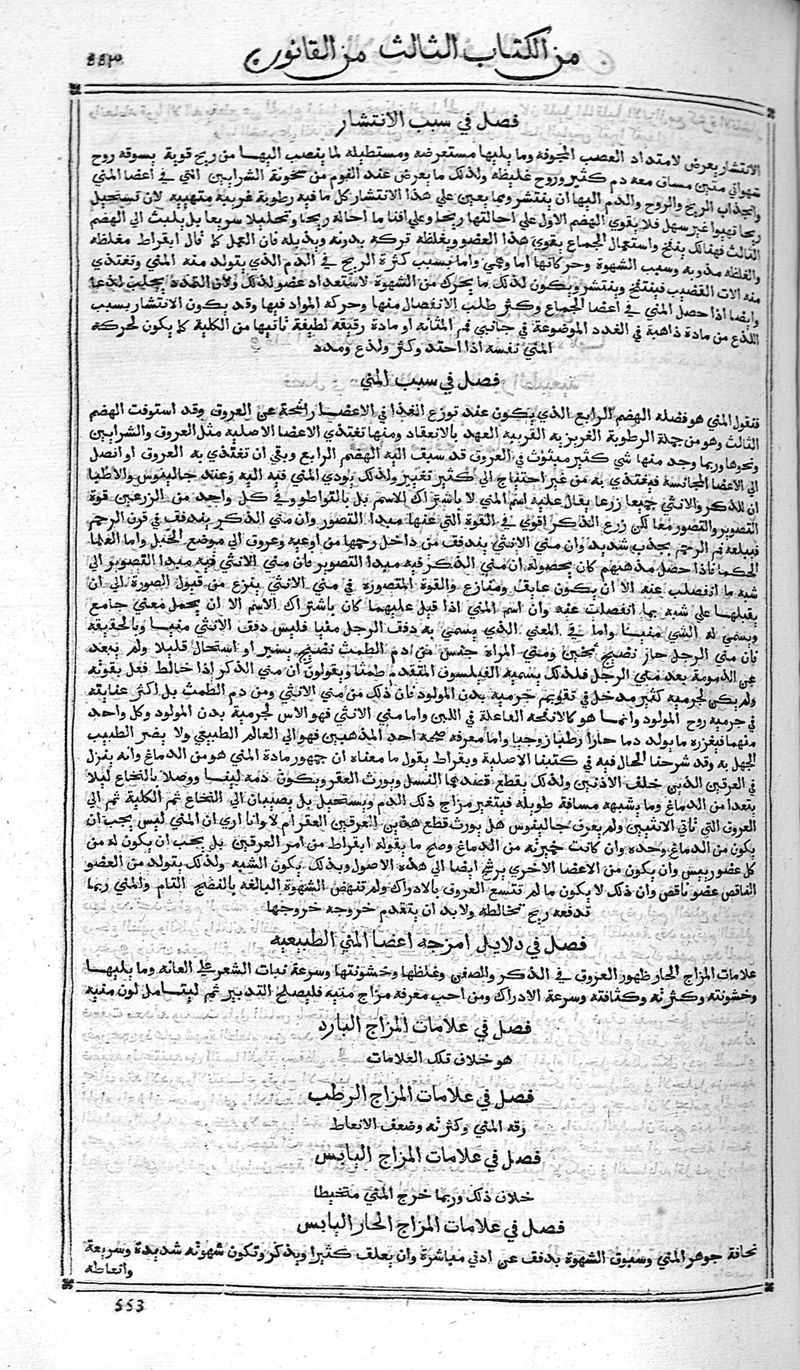 من الكتاب الثالث من القانون ٤٤٣
فصل في سبب الانتشار
الانتشار يعرض لامتداد العصب المجوفه وما يليها مستعرضه ومستطيله لما ينصب اليها من ريح قوية يسوقه روح
شهواني متين مساق معه دم كثير وروح غليظه ولذلك ما يعرض عند النوم من سخونة الشرايين التي في اعضا المني
وانجذاب الريح والروح والدم اليها ان ينتشر ومما يعين على هذا الانتشار كل ما فيه رطوبة غريبه متهييه لان تستحيل
ريحا تهيوا غير سهل فلا يقوي الهضم الاول على احالتها ريحا وعلى افنا ما احاله ريحا وتحليله سريعا بل يلبث الى الهضم
الثالث فهنالك ينفخ واستعمال الجماع يقوي هذا العضو ويغلظه وتركه يذيبه ويذبله فان العمل كما قال ابقراط مغلظه
والعطله مذوبه وسبب الشهوة وحركاتها اما وهمي واما بسبب كثرة الريح في الدم الذي يتولد منه المني وتغتذي
منه الات القضيب فينتفخ وينتشر ويكون لذلك ما يحرك من الشهوة لاستعداد عضو لذلك ولان التمدد يجلب لذعا
وايضا اذا حصل المني في اعضا الجماع وكثر طلب الانفصال منها وحركه المواد فيها وقد يكون الانتشار بسبب
اللذع من مادة ذاهبة في الغدد الموضوعة في جانبي فم المثانه او مادة رقيقه لطيفة تاتيها من الكلية كما يكون لحركة
المني نفسه اذا احتد وكثر ولذع ومدد
فصل في سبب المني
فنقول المني هو فضله الهضم الرابع الذي يكون عند توزع الغذا في الاعضا راشحة عن العروق وقد استوفت الهضم
الثالث وهو من جملة الرطوبة الغريزيه القريبه العهد بالانعقاد ومنها تغتذي الاعضا الاصليه مثل العروق والشرايين
ونحوها وربما وجد منها شي كثير مبثوث في العروق قد سبق اليه الهضم الرابع وبقي ان تغتذي به العروق او تصل
الى الاعضا المجانسة فيغتذي به من غير احتياج الى كثير تغيير ولذلك يودي المني فيه اليه وعند جالينوس والاطبا
ان للذكر والانثي جميعا زرعا يقال عليه اسم المني لا باشتراك الاسم بل بالتواطو وفي كل واحد من الزرعين قوة
التصوير والتصور معا لكن زرع الذكر اقوي في القوة التي عنها مبدا التصوير وان مني الذكر يندفق في قرن الرحم
فيبلعه فم الرحم بجذب شديد وان مني الانثي يندفق من داخل رحمها من اوعيه وعروق الى موضع الحبل واما العلما
الحكما فاذا حصل مذهبهم كان محصوله ان مني الذكر فيه مبدا التصوير وان مني الانثي فيه مبدا التصور الى
شبه ما انفصلت عنه الا ان يكون عايق ومنازع والقوة المتصورة في مني الانثي تنزع من قبول الصورة الى ان
يقبلها على شبه بما انفصلت عنه وان اسم المني اذا قيل عليهما كان باشتراك الاسم الا ان يحمل معني جامع
ويسمي له الشي منيا واما في المعني الذي يسمي به دفق الرجل منيا فليس دفق الانثي منيا وبالحقيقه
فان مني الرجل حار نضيج ثخين ومني المراة جنس من دم الطمث نضيج يسير او استحال قليلا ولم يبعد
عن الدموية بعد مني الرجل فلذلك يسميه الفيلسوف المتقدم طمثا ويقولون ان مني الذكر اذا خالط فعل بقوته
ولم يكن لجرميه كثير مدخل في تقويم جرميه بدن المولود فان ذلك من مني الانثي ومن دم الطمث بل اكثر عنايته
في جرميه روح المولود وانما هو كالانفحه الفاعلة في اللبن واما مني الانثي فهو الاس لجرمية بدن المولود وكل واحد
منهما فيغزره ما يولد دما حارا رطبا روحيا واما معرفه صحه احد المذهبين فهو الى العالم الطبيعي ولا يضر الطبيب
الجهل به وقد شرحنا الحال فيه في كتبنا الاصلية وبقراط يقول ما معناه ان جمهور مادة المني هو من الدماغ وانه ينزل
في العرقين الذين خلف الاذنين ولذلك يقطع فصدهما النسل ويورث العقر ويكون دمه لبنيا ووصلا بالنخاع ليلا
يبعدا من الدماغ وما يشبهه مسافة طويله فيتغير مزاج ذلك الدم ويستحيل بل يصبان الى النخاع ثم الكلية ثم الى
العروق التي تاتي الانثيين ولم يعرف جالينوس هل يورث قطع هذين العرقين العقر ام لا وانا اري ان المني ليس يجب ان
يكون من الدماغ وحده وان كانت خميرته من الدماغ وصح ما يقوله ابقراط من امر العرقين بل يجب ان يكون له من
كل عضو رييس وان يكون من الاعضا الاخري يرشح ايضا الى هذه الاصول وبذلك يكون الشبه ولذلك يتولد من العضو
الناقص عضو ناقص وان ذلك لا يكون ما لم تتسع العروق بالادراك ولم تنهض الشهوة البالغه بالنضج التام والمني ربما
تدفعه ريح تخالطه ولا بد ان يتقدم خروجه خروجها
فصل في دلايل امزجه اعضا المني الطبيعيه
علامات المزاج الحار ظهور العروق في الذكر والصفن وغلظها وخشونتها وسرعة نبات الشعر على العانه وما يليها
وخشونته وكثرته وكثافته وسرعة الادراك ومن احب معرفه مزاج منيه فليصلح التدبير ثم ليتامل لون منيه
فصل في علامات المزاج البارد
هو خلاف تلك العلامات
فصل في علامات المزاج الرطب
رقه المني وكثرته وضعف الانعاظ
فصل في علامات المزاج اليابس
خلاف ذلك وربما خرج المني متخيطا
فصل في علامات المزاج الحار اليابس
نحافة جوهر المني وسبوق الشهوة يدفق عن ادني مباشرة وان يعلق كثيرا ويذكر وتكون شهوته شديدة وسريعة
وانعاظه
553